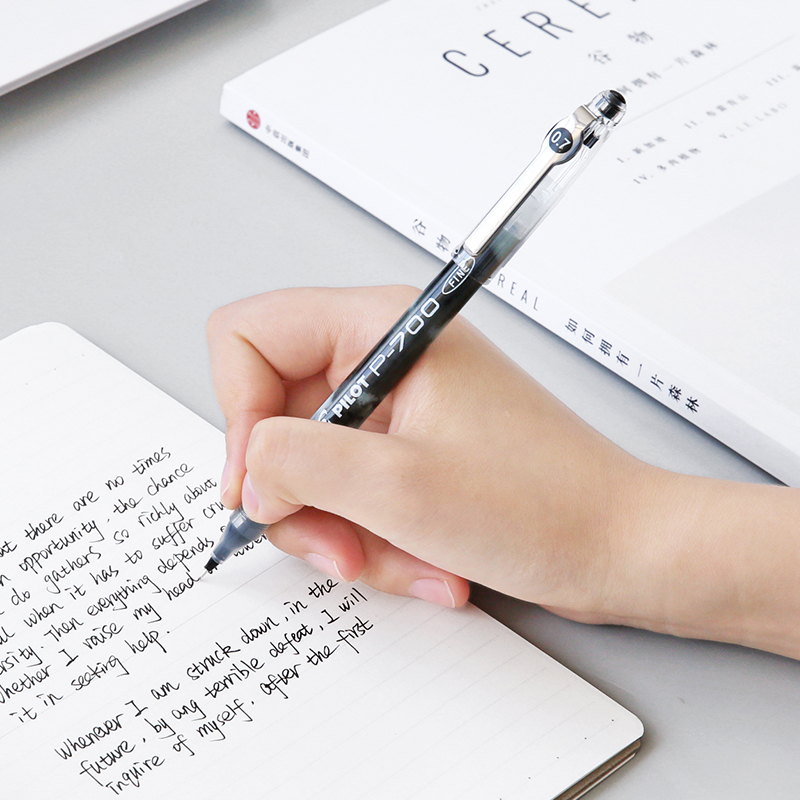 CERE
谷 物
拥有一片森林
II.
III.
IV. 多肉植物 V. LE LABO
谷物
EREAL
如何拥有一片森林
0.7
FINE
PILOT P-700
at there are no times
n opportunity, the chance
do gathers so richly about
ll when it has to suffer cru
rsity. Then everything depends
whether I raise my head
it in seeking help.
Whenever I am struck down, in the
future, by any terrible defeat, I will
inquire of myself. after the first